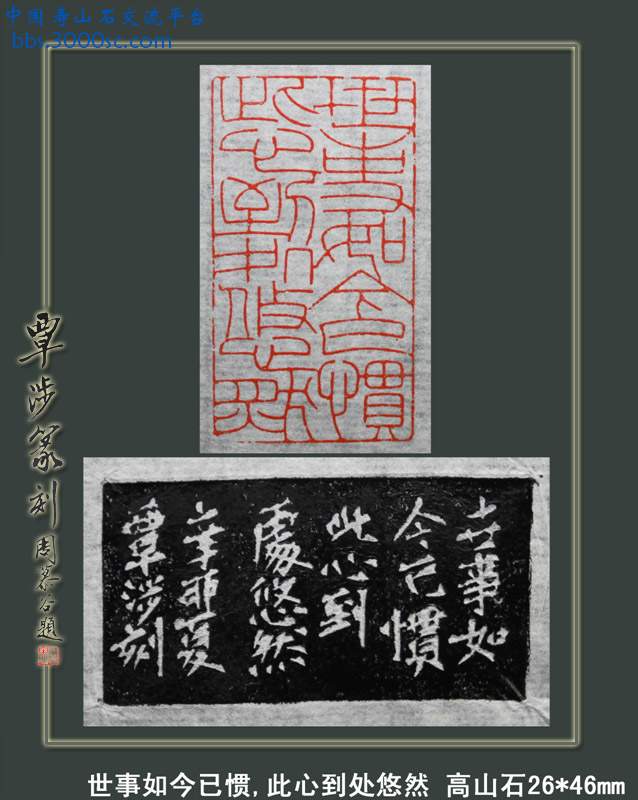 中国寿山石交流平台
bbs.3000sc.com
世事如今已慣
此心到處悠然
覃涉篆刻
世事如
今已慣
此心到
處悠然
辛卯夏
覃涉刻
世事如今已惯,此心到处悠然 高山石26*46mm